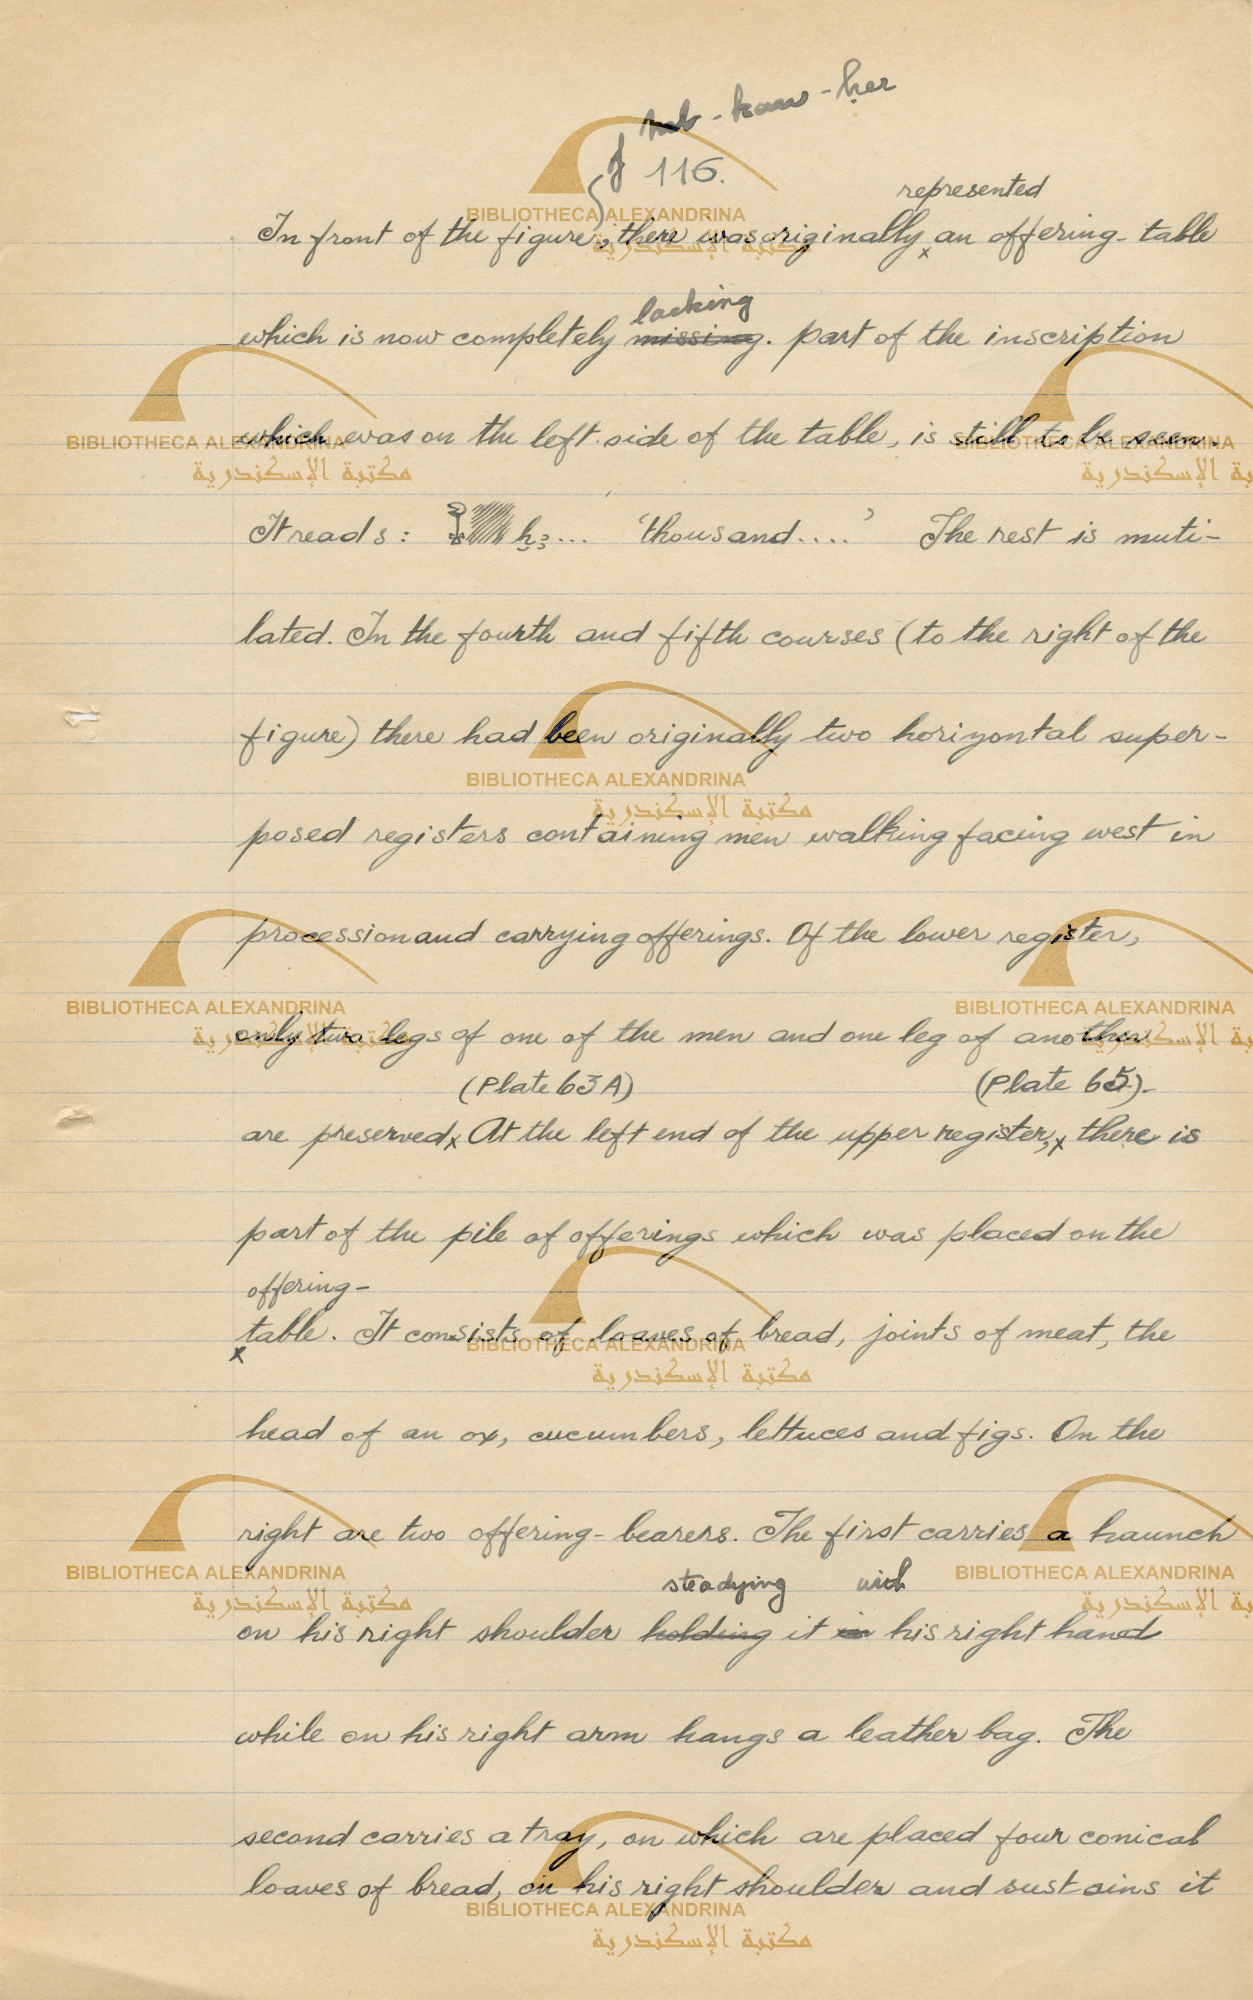 of neb-kaw-ḥer
116.
represented
In front of the figure, there was originally x an offering-table
lacking
which is now completely missing. part of the inscription
which was on the left side of the table, is still to be seen.
It reads : ḫȝ... 'thousand....' The rest is muti-
lated. In the fourth and fifth courses (to the right of the
figure) there had been originally two horizontal super-
posed registers containing men walking facing west in
procession and carrying offerings. Of the lower register,
only two legs of one of the men and one leg of another
(Plate 63 A) (Plate 65).
are preserved x At the left end of the upper register, x there is
part of the pile of offerings which was placed on the
offering-
x table. It consists of loaves of bread, joints of meat, the
head of an ox, cucumbers, lettuces and figs. On the
right are two offering-bearers. The first carries a haunch
steadying with
on his right shoulder holding it in his right hand
while on his right arm hangs a leather bag. The
second carries a tray, on which are placed four conical
loaves of bread, on his right shoulder and sustains it
BIBLIOTHECA ALEXANDRINA
مكتبة الإسكندرية